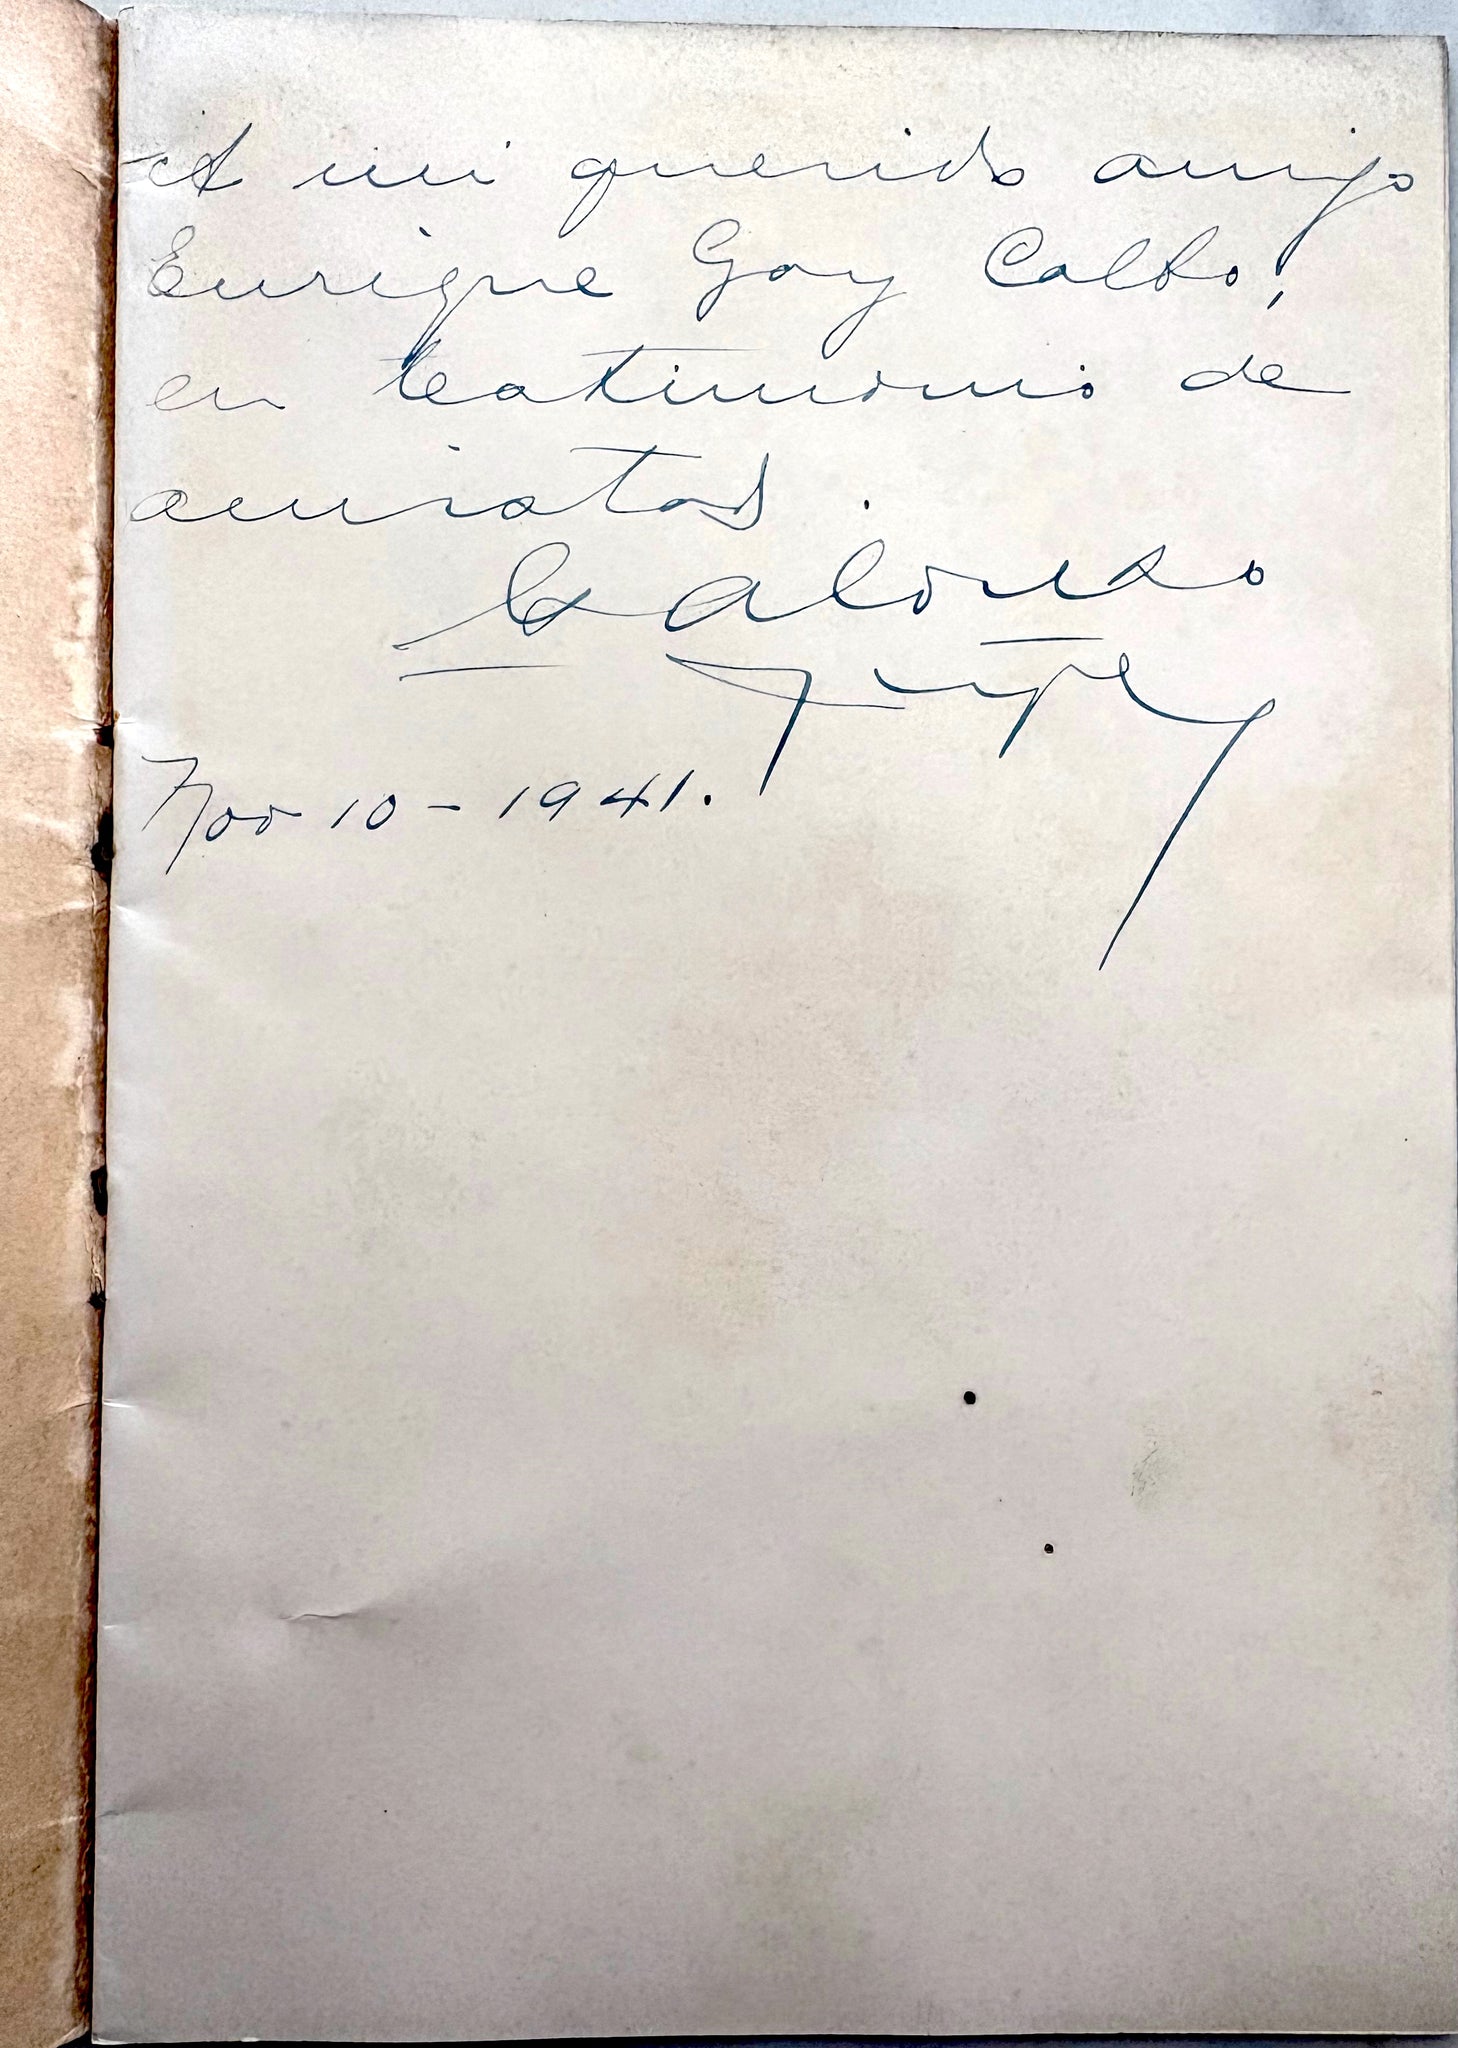 A mi querido amigo
Enrique Gay Calbó,
en testimonio de
amistad.
Alonso
Nov 10-1941.